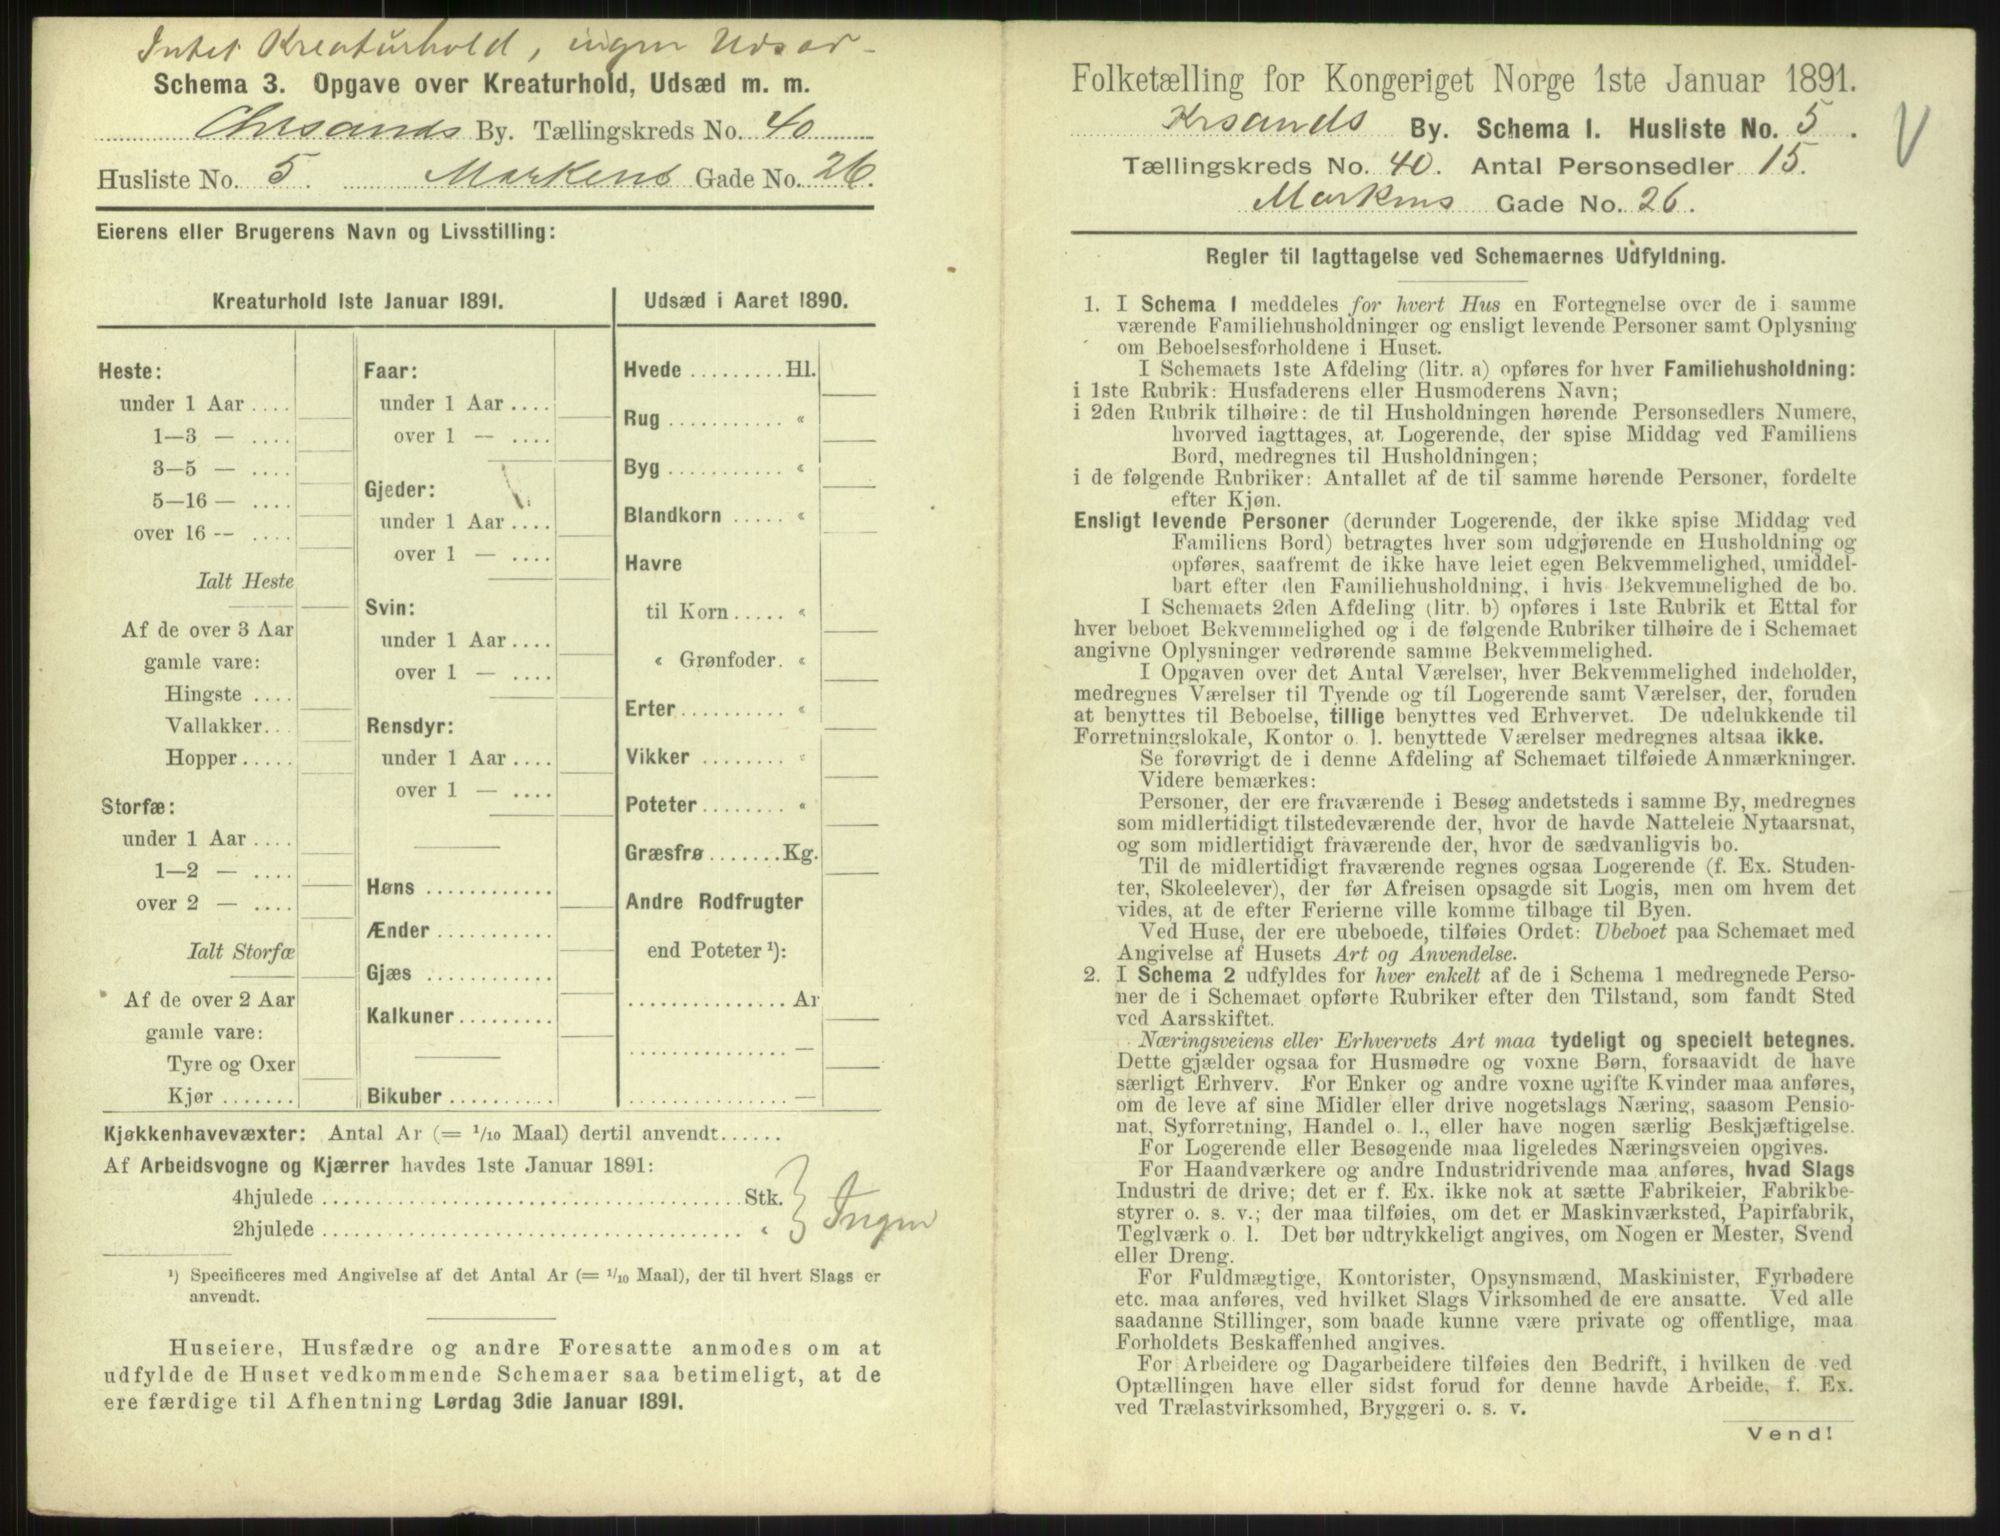 Intet Kreaturhold, ingen Udsæd
Schema 3. Opgave over Kreaturhold, Udsæd m. m.
Chrsands By. Tællingskreds No. 40
Husliste No. 5. Markens Gade No. 26.
Eierens eller Brugerens Navn og Livsstilling:
Kreaturhold 1ste Januar 1891.
Heste:
under 1 Aar ....
1—3 — ....
3—5 — ....
5—16 — ....
over 16 -- ....
Ialt Heste
Af de over 3 Aar
gamle vare:
Hingste ....
Vallakker...
Hopper.....
Storfæ:
under 1 Aar ....
1—2 — ....
over 2 — ....
Ialt Storfæ
Af de over 2 Aar
gamle vare:
Tyre og Oxer
Kjør .......
Faar:
under 1 Aar ....
over 1 — ....
Gjeder:
under 1 Aar ....
over 1 — ....
Svin:
under 1 Aar ....
over 1 — ....
Rensdyr:
under 1 Aar ....
over 1 — ....
Høns ............
Ænder ...........
Gjæs ............
Kalkuner.........
Bikuber ..........
Udsæd i Aaret 1890.
Hvede .........Hl.
Rug ........... «
Byg ........... «
Blandkorn ..... «
Havre
til Korn..... «
« Grønfoder. «
Erter.......... «
Vikker ........ «
Poteter........ «
Græsfrø.......Kg.
Andre Rodfrugter
end Poteter ¹):
...............Ar
............... —
............... —
Kjøkkenhavevæxter: Antal Ar (= 1/10 Maal) dertil anvendt......
Af Arbeidsvogne og Kjærrer havdes 1ste Januar 1891:
4hjulede ........................................ Stk.
2hjulede ........................................ «
} Ingen
¹) Specificeres med Angivelse af det Antal Ar (= 1/10 Maal), der til hvert Slags er
anvendt.
Huseiere, Husfædre og andre Foresatte anmodes om at
udfylde de Huset vedkommende Schemaer saa betimeligt, at de
ere færdige til Afhentning Lørdag 3die Januar 1891.
Folketælling for Kongeriget Norge 1ste Januar 1891.
Krsands By. Schema 1. Husliste No. 5.
Tællingskreds No. 40. Antal Personsedler 15.
Markens Gade No. 26.
V
Regler til Iagttagelse ved Schemaernes Udfyldning.
1. I Schema 1 meddeles for hvert Hus en Fortegnelse over de i samme
værende Familiehusholdninger og ensligt levende Personer samt Oplysning
om Beboelsesforholdene i Huset.
I Schemaets 1ste Afdeling (litr. a) opføres for hver Familiehusholdning:
i 1ste Rubrik: Husfaderens eller Husmoderens Navn;
i 2den Rubrik tilhøire: de til Husholdningen hørende Personsedlers Numere,
hvorved iagttages, at Logerende, der spise Middag ved Familiens
Bord, medregnes til Husholdningen;
i de følgende Rubriker: Antallet af de til samme hørende Personer, fordelte
efter Kjøn.
Ensligt levende Personer (derunder Logerende, der ikke spise Middag ved
Familiens Bord) betragtes hver som udgjørende en Husholdning og
opføres, saafremt de ikke have leiet egen Bekvemmelighed, umiddel-
bart efter den Familiehusholdning, i hvis Bekvemmelighed de bo.
I Schemaets 2den Afdeling (litr. b) opføres i 1ste Rubrik et Ettal for
hver beboet Bekvemmelighed og i de følgende Rubriker tilhøire de i Schemaet
angivne Oplysninger vedrørende samme Bekvemmelighed.
I Opgaven over det Antal Værelser, hver Bekvemmelighed indeholder,
medregnes Værelser til Tyende og til Logerende samt Værelser, der, foruden
at benyttes til Beboelse, tillige benyttes ved Erhvervet. De udelukkende til
Forretningslokale, Kontor o. l. benyttede Værelser medregnes altsaa ikke.
Se forøvrigt de i denne Afdeling af Schemaet tilføiede Anmærkninger.
Videre bemærkes:
Personer, der ere fraværende i Besøg andetsteds i samme By, medregnes
som midlertidigt tilstedeværende der, hvor de havde Natteleie Nytaarsnat,
og som midlertidigt fraværende der, hvor de sædvanligvis bo.
Til de midlertidigt fraværende regnes ogsaa Logerende (f. Ex. Studen-
ter, Skoleelever), der før Afreisen opsagde sit Logis, men om hvem det
vides, at de efter Ferierne ville komme tilbage til Byen.
Ved Huse, der ere ubeboede, tilføies Ordet: Ubeboet paa Schemaet med
Angivelse af Husets Art og Anvendelse.
2. I Schema 2 udfyldes for hver enkelt af de i Schema 1 medregnede Perso-
ner de i Schemaet opførte Rubriker efter den Tilstand, som fandt Sted
ved Aarsskiftet.
Næringsveiens eller Erhvervets Art maa tydeligt og specielt betegnes.
Dette gjælder ogsaa for Husmødre og voxne Børn, forsaavidt de have
særligt Erhverv. For Enker og andre voxne ugifte Kvinder maa anføres,
om de leve af sine Midler eller drive nogetslags Næring, saasom Pensio-
nat, Syforretning, Handel o. l., eller have nogen særlig Beskjæftigelse.
For Logerende eller Besøgende maa ligeledes Næringsveien opgives.
For Haandværkere og andre Industridrivende maa anføres, hvad Slags
Industri de drive; det er f. Ex. ikke nok at sætte Fabrikeier, Fabrikbe-
styrer o. s. v.; der maa tilføies, om det er Maskinværksted, Papirfabrik,
Teglværk o. l. Det bør udtrykkeligt angives, om Nogen er Mester, Svend
eller Dreng.
For Fuldmægtige, Kontorister, Opsynsmænd, Maskinister, Fyrbødere
etc. maa anføres, ved hvilket Slags Virksomhed de ere ansatte. Ved alle
saadanne Stillinger, som baade kunne være private og offentlige, maa
Forholdets Beskaffenhed angives.
For Arbeidere og Dagarbeidere tilføies den Bedrift, i hvilken de ved
Optællingen have eller sidst forud for denne havde Arbeide, f. Ex.
ved Trælastvirksomhed, Bryggeri o. s. v.
Vend!